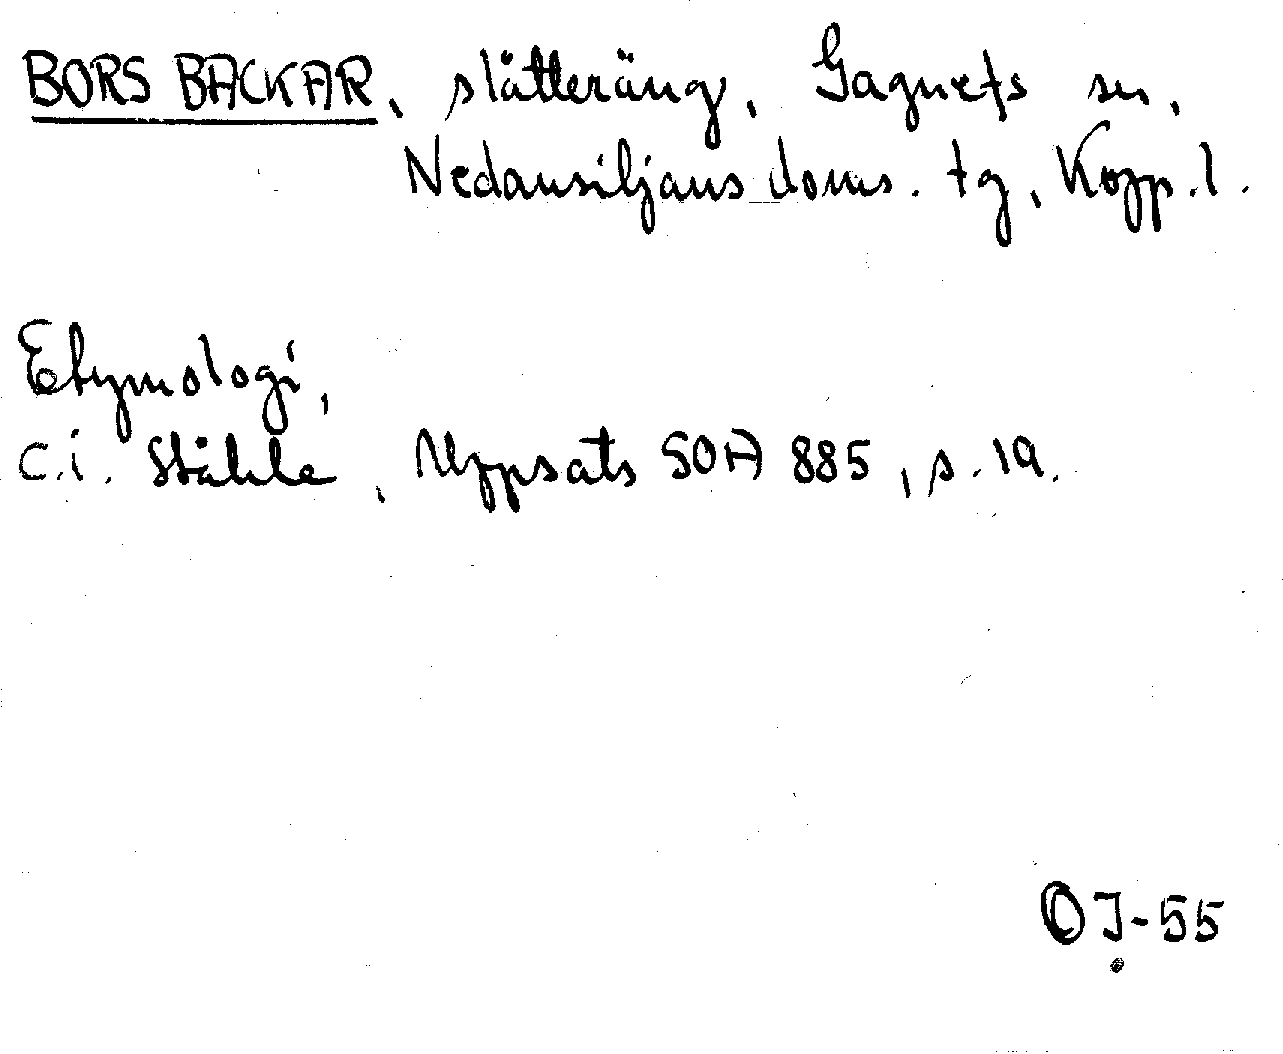 BORS BACKAR, slåtteräng, Gagnefs sn,
Nedansiljans doms. tg, Kopp. l.
Etymologi,
C.i. Ståhle, Uppsats SOA 885, s. 19.
OJ-55